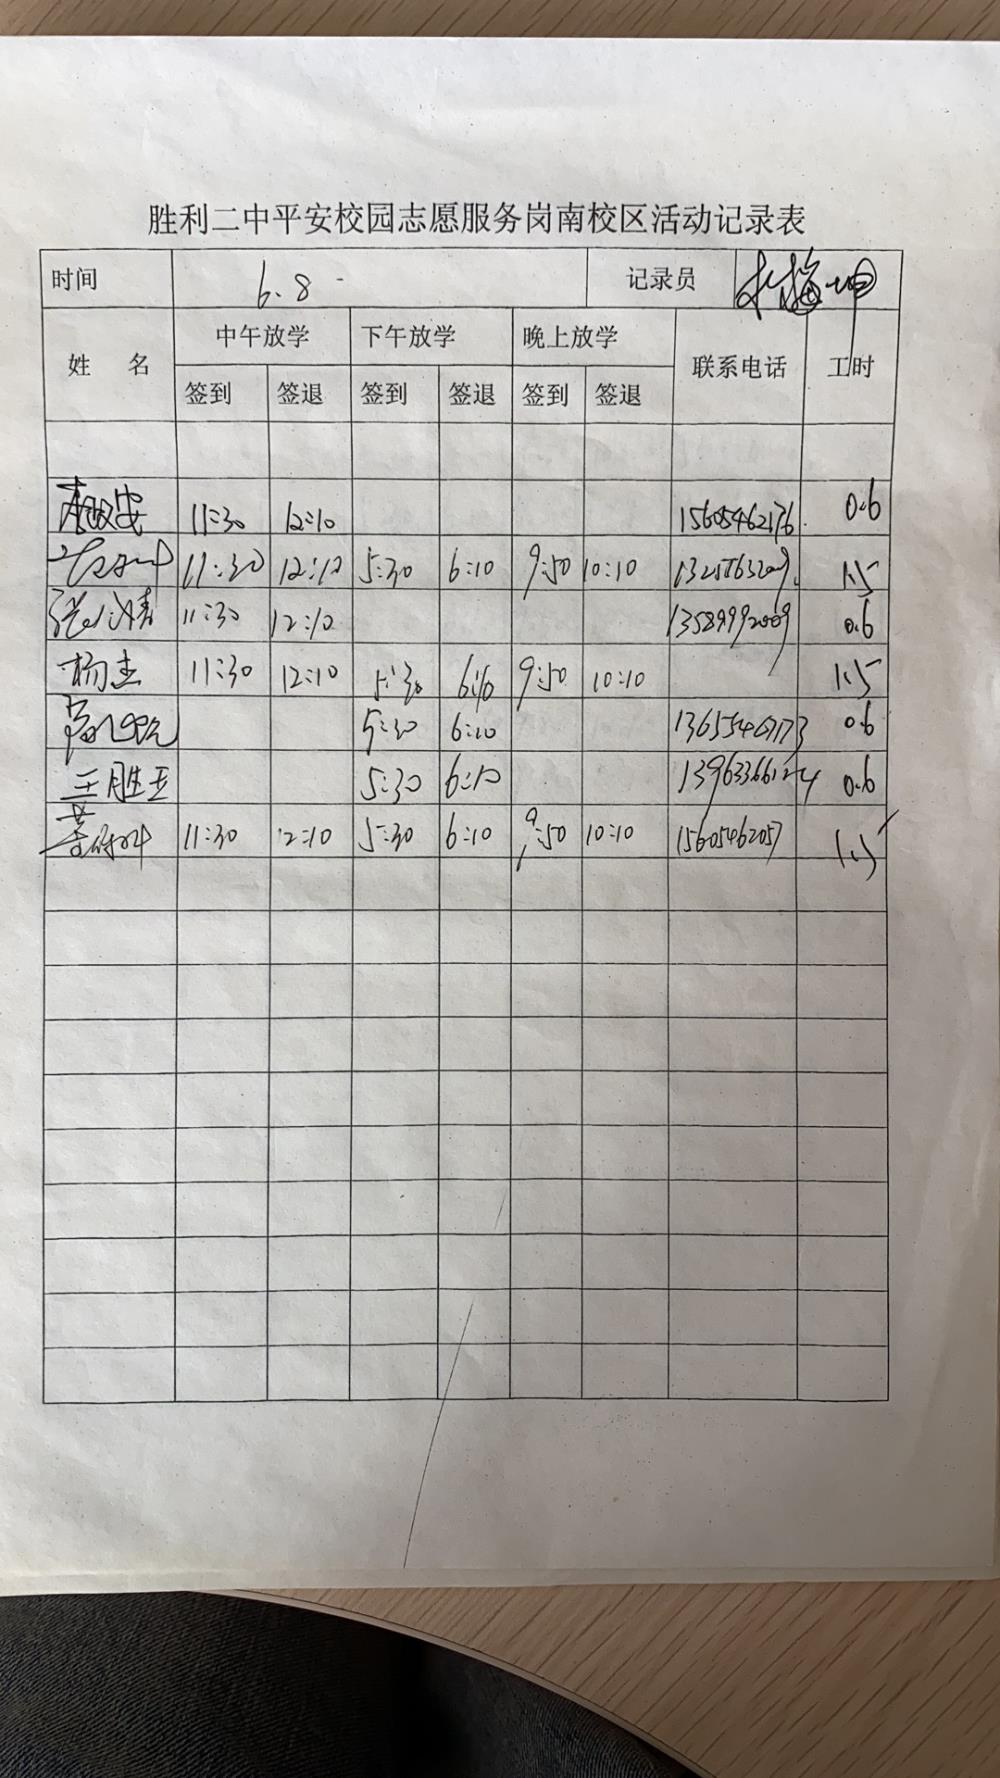 胜利二中平安校园志愿服务岗南校区活动记录表
时间 6.8 记录员
姓 名 中午放学 下午放学 晚上放学 联系电话 工时
签到 签退 签到 签退 签到 签退
11:30 12:10 15605462176 0.6
11:30 12:10 5:30 6:10 9:50 10:10 1.5
11:30 12:10 13589992009 0.6
杨杰 11:30 12:10 5:30 6:10 9:50 10:10 1.5
5:30 6:10 0.6
王胜玉 5:30 6:10 0.6
11:30 12:10 5:30 6:10 9:50 10:10 15605462057 1.5